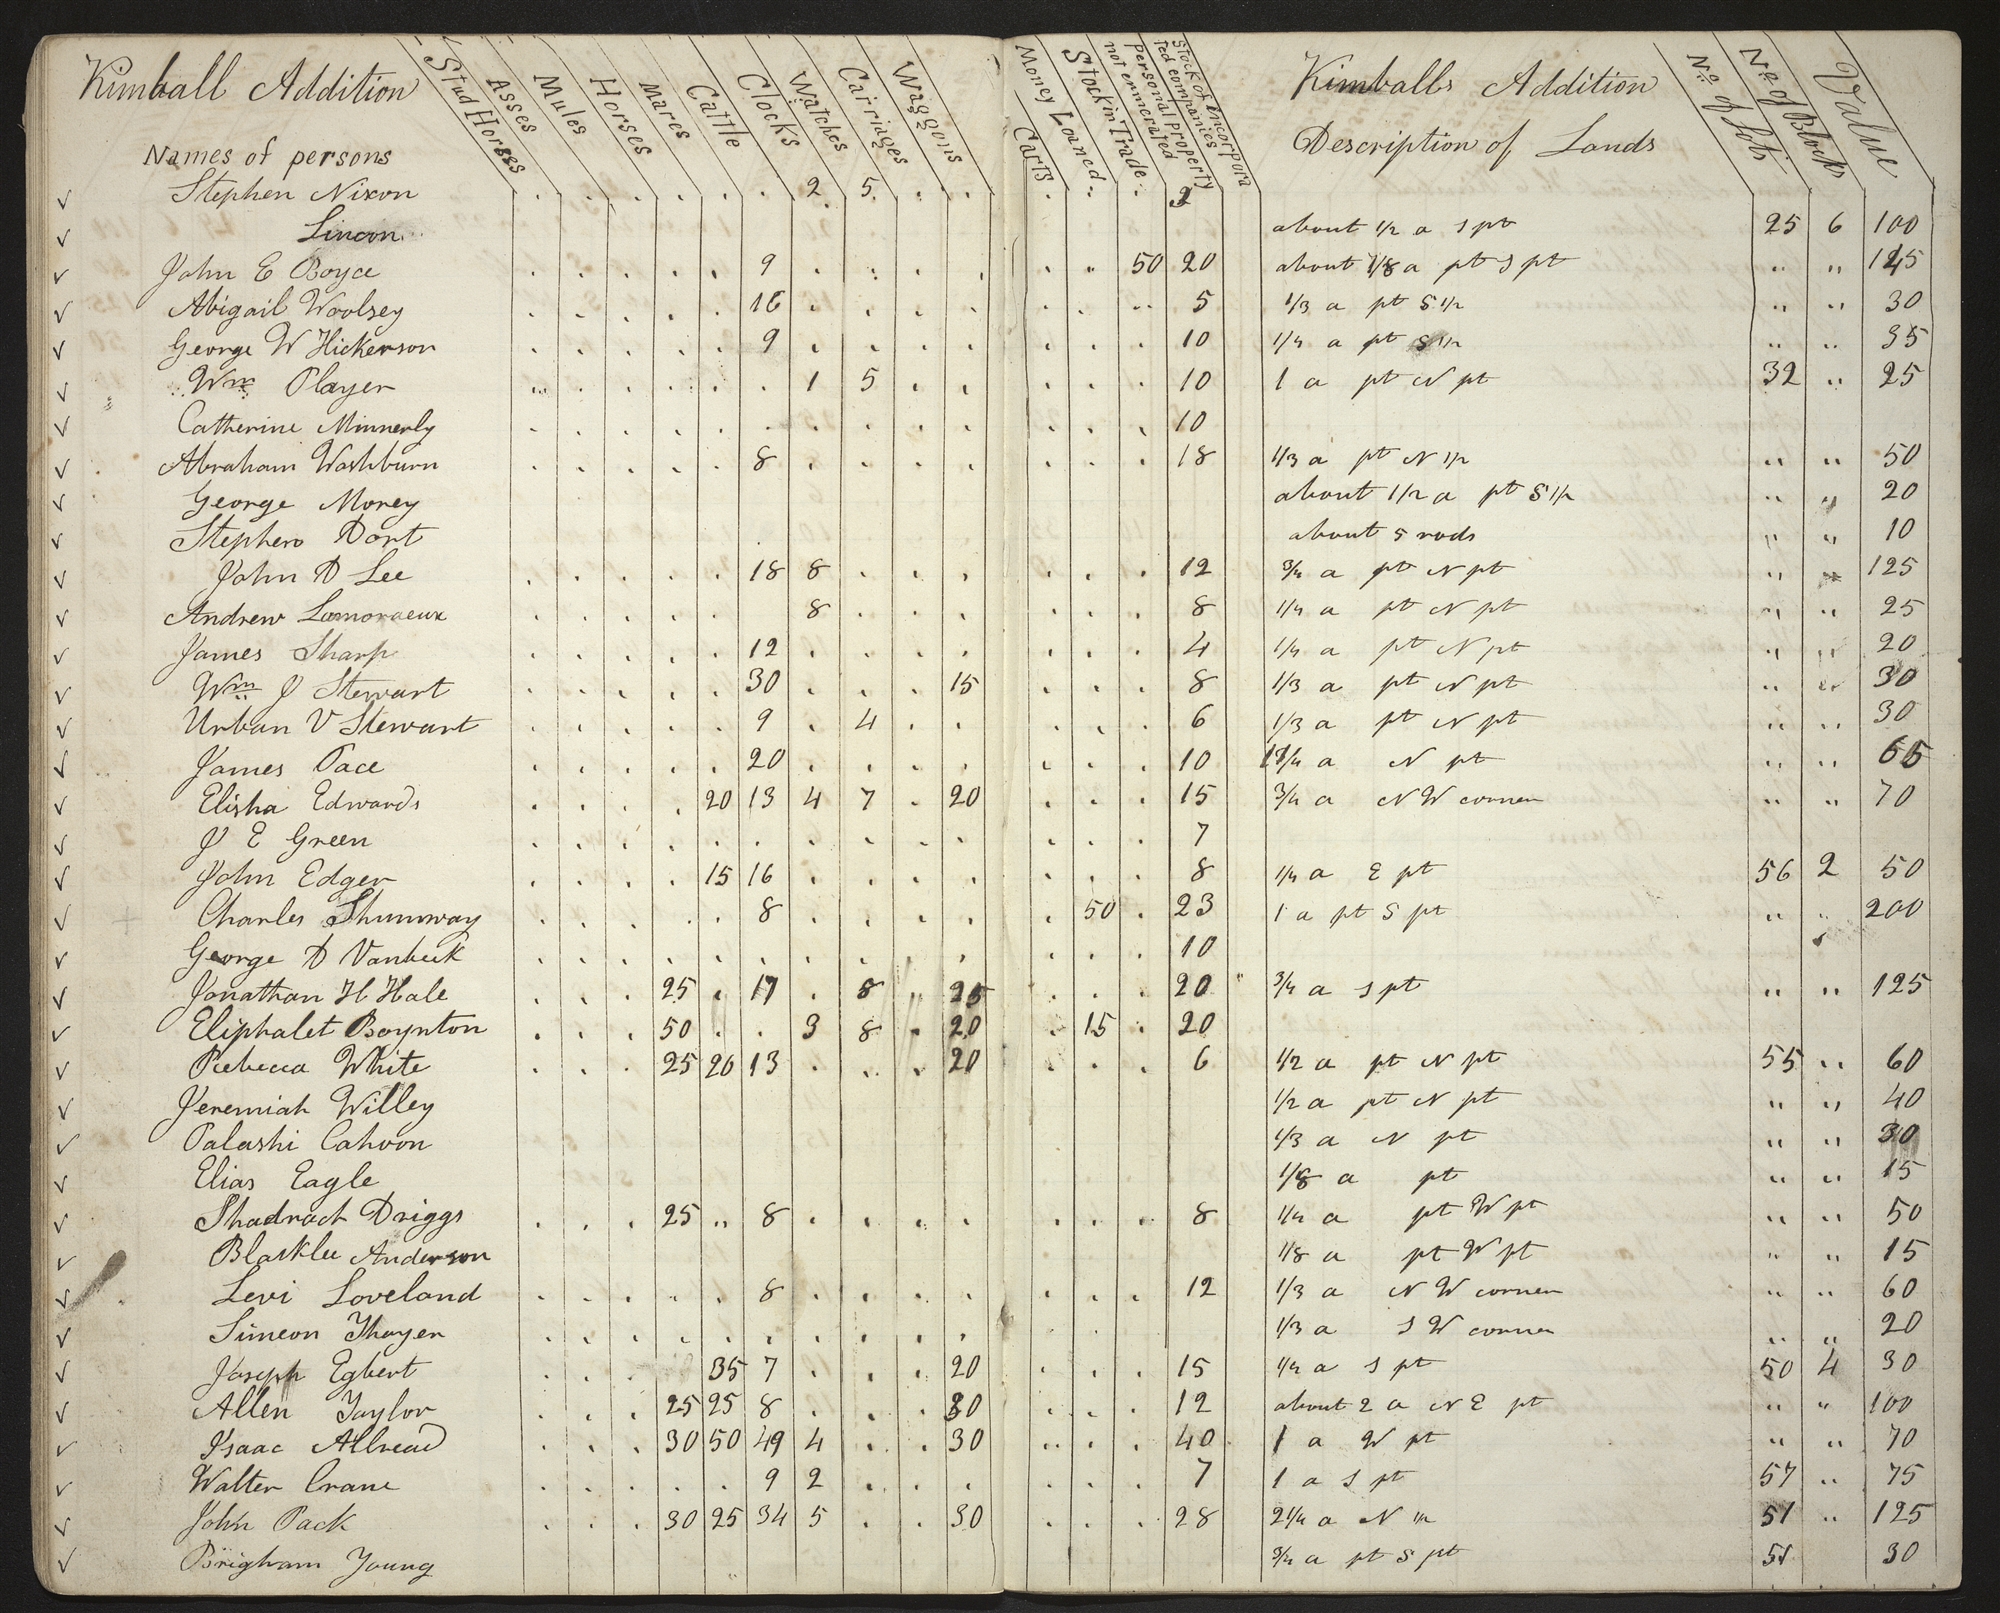 Kimball Addition
Stud Horses Asses Mules Horses Mares Cattle Clocks Watches Carriages Waggons
Carts Money Loaned Stock in Trade not enumerated personal property Stock of Encorporated companies
Kimballs Addition
Description of Lands No of Lots No of Block Value
Names of persons
Stephen Nixon . . . . . . 2 5 . . . . . 2
Lincon about 1/2 a S pt 25 6 100
John E Boyce . . . . . 9 . . . . . . 50 20 about 7/8 a pt S pt " " 145
Abigail Woolsey . . . . . 16 . . . . . . " 5 1/3 a pt S 1/2 " " 30
George W Hickerson . . . . . 9 . . . . . . . 10 1/4 a pt S 1/2 " " 35
Wm Player . . . . . . 1 5 . . . . . 10 1 a pt N pt 32 " 25
Catherine Minnerly . . . . . . . . . . . . . 10
Abraham Washburn . . . . . 8 . . . . . . . 18 1/3 a pt N 1/2 " " 50
George Morey about 1/2 a pt S 1/2 " " 20
Stephen Dort about 5 rods " " 10
John D Lee . . . . . 18 8 . . . . . . 12 3/4 a pt N pt " " 125
Andrew Lamoraeux . . . . . . 8 . . . . . . 8 1/4 a pt N pt " " 25
James Sharp . . . . . 12 . . . . . . . 4 1/4 a pt N pt " " 20
Wm J Stewart . . . . . 30 . . . 15 . . . 8 1/3 a pt N pt " " 30
Urban V Stewart . . . . . 9 . 4 . . . . . 6 1/3 a pt N pt " " 30
James Pace . . . . . 20 . . . . . . . 10 a N pt " " 65
Elisha Edwards . . . . 20 13 4 7 . 20 . . . 15 3/4 a N W corner " " 70
J E Green . . . . . . . . . . . . . 7
John Edger . . . . 15 16 . . . . . . . 8 1/4 a E pt 56 2 50
Charles Shumway . . . . . 8 . . . . . 50 . 23 1 a pt S pt " " 200
George D Vanbeek . . . . . . . . . . . . . 10
Jonathan H Hale . . . 25 . 17 . 8 " 25 . . . 20 " 3/4 a S pt " " 125
Eliphalet Boynton . . . 50 . . 3 8 . 20 . 15 . 20
Rebecca White . . . 25 20 13 . . . 20 . . . 6 1/2 a pt N pt 55 " 60
Jeremiah Willey 1/2 a pt N pt " " 40
Palashi Cahoon 1/3 a N pt " " 30
Elias Eagle 1/8 a pt " " 15
Shadrach Driggs . . . 25 " 8 . . . . . . . 8 1/4 a pt W pt " " 50
Blasklee Anderson 1/8 a pt W pt " " 15
Levi Loveland . . . . . 8 . . . . . . . 12 1/3 a N W corner " " 60
Simeon Thayer . . . . . . . . . . . . 1/3 a S W corner " " 20
Joseph Egbert . . . 35 7 . . . 20 . . . 15 1/4 a S pt 50 4 30
Allen Taylor . . . 25 25 8 . . . 30 . . . 12 about 2 a N E pt " " 100
Isaac Allread . . . 30 50 49 4 . . 30 " . . 40 1 a W pt " " 70
Walter Crane . . . . . 9 2 . . . . . . 7 1 a S pt 57 " 75
John Pack . . . 30 25 34 5 . . 30 . . . 28 2 1/4 a N 1/2 51 " 125
Brigham Young 3/4 a pt S pt 51 30